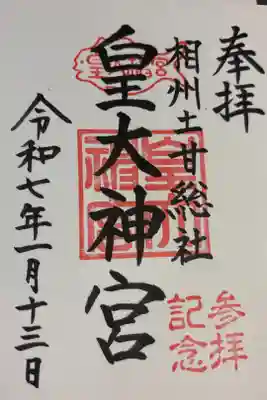 奉拝
相州土甘総社
皇大神宮
令和七年一月十三日
参拝
記念